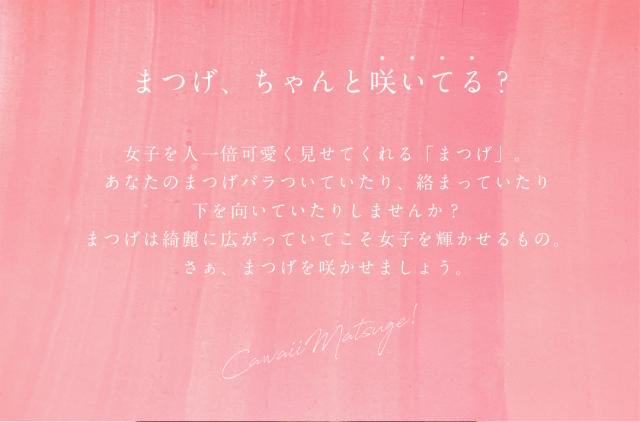 まつげ、ちゃんと咲いてる？
女子を人一倍可愛く見せてくれる「まつげ」。
あなたのまつげバラついていたり、絡まっていたり
下を向いていたりしませんか？
まつげは綺麗に広がっていてこそ女子を輝かせるもの。
さぁ、まつげを咲かせましょう。
Cawaii Matsuge!